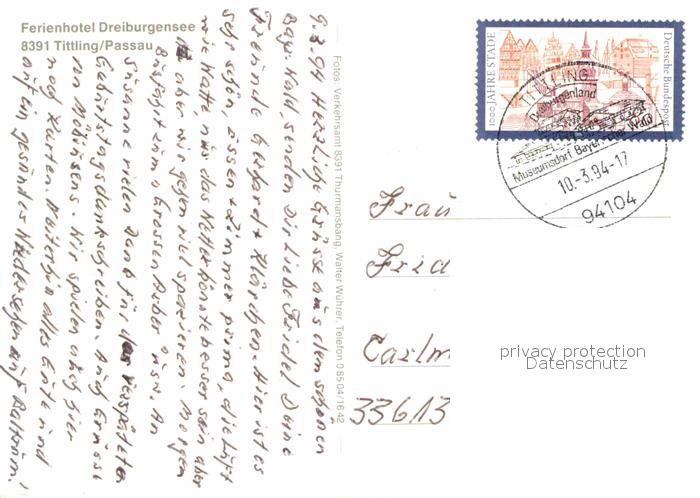 Ferienhotel Dreiburgensee
8391 Tittling/Passau
9.3.94 Herzliche Grüsse aus dem schönen
Bayr. Wald senden Dir liebe Friedel Deine
Freunde Gerhard + Klärchen. Hier ist es
sehr schön, Essen + Zimmer prima, die Luft
wie Watte, nur das Wetter könnte besser sein aber
aber wir gehen viel spazieren. Morgen
Busfahrt zum Grossen Arber usw. An
Gisa vielen Dank für das verspätete
Geburtstagsdankschreiben. Auch Grüsse
von Möbiusens. Wir spielen auch hier
noch Karten. Weiterhin alles Gute und
auf ein gesundes Wiedersehen auf Baltrum!
Fotos: Verkehrsamt 8391 Thurmansbang, Walter Wührer, Telefon 0 85 04/16 42
1000 JAHRE STADE
Deutsche Bundespost
TITTLING
Dreiburgenland
Museumsdorf Bayerischer Wald
10.-3.94-17
94104
Frau
Fried
Carlm
33613
privacy protection
Datenschutz